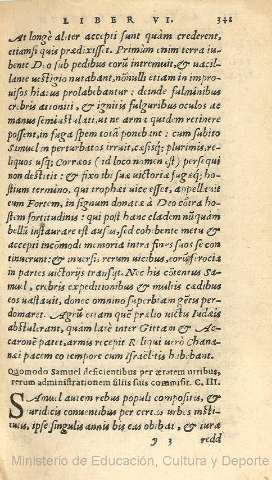 LIBER VI. 348
At longè aliter accepti sunt quàm crederent,
etiamsi quis prædixisset. Primùm enim terra iu-
bente Deo sub pedibus eorũ intremuit, & vacil-
lante uestigio nutabant, nõnulli etiam in improu-
isos hiatus prolabebantur: dein de fulminibus
crebris attoniti, & ignitis fulguribus oculos ac
manus semiustulati, ut ne arma quidem retinere
possent, in fuga spem totã ponebant: cum subito
Samuel in perturbatos irruit, cæsisq; plurimis, re-
liquos usq; Corræos (id loco nomen est) persequi
non destitit: & fixo ibi suæ uictoriæ fugæq; ho-
stium termino, qui trophæi uice esset, appellauit
eum Fortem, in signum donatæ à Deo cõtra ho-
stem fortitudinis: qui post hanc cladem nũquàm
bellũ instaurare est ausus, sed cohibente metu &
accepti incõmodi memoria intra fines suos se con
tinuerunt: & inuersis rerum uicibus, eorũ ferocia
in partes uictorũ transijt. Nec his cõtentus Samu-
el, crebris expeditionibus & multis cædibus
eos uastauit, donec omnino superbiam gẽtis per-
domaret. Agrũ etiam quẽ prælio uictis Iudæis
abstulerant, quàm latè inter Gittam & Ac-
caronẽ patet, armis recepit. Reliqui uerò Chana-
næi pacem eo tempore cum Israëlitis habebant.
Quomodo Samuel deficientibus per ætatem uiribus,
rerum administrationem filiis suis commisit. C. III.
SAmuel autem rebus populi compositis, &
iuridicis conuentibus per certas urbes insti-
tutis, ipse singulis annis bis eas obibat, & iura
y 3 redd
Ministerio de Educación, Cultura y Deporte